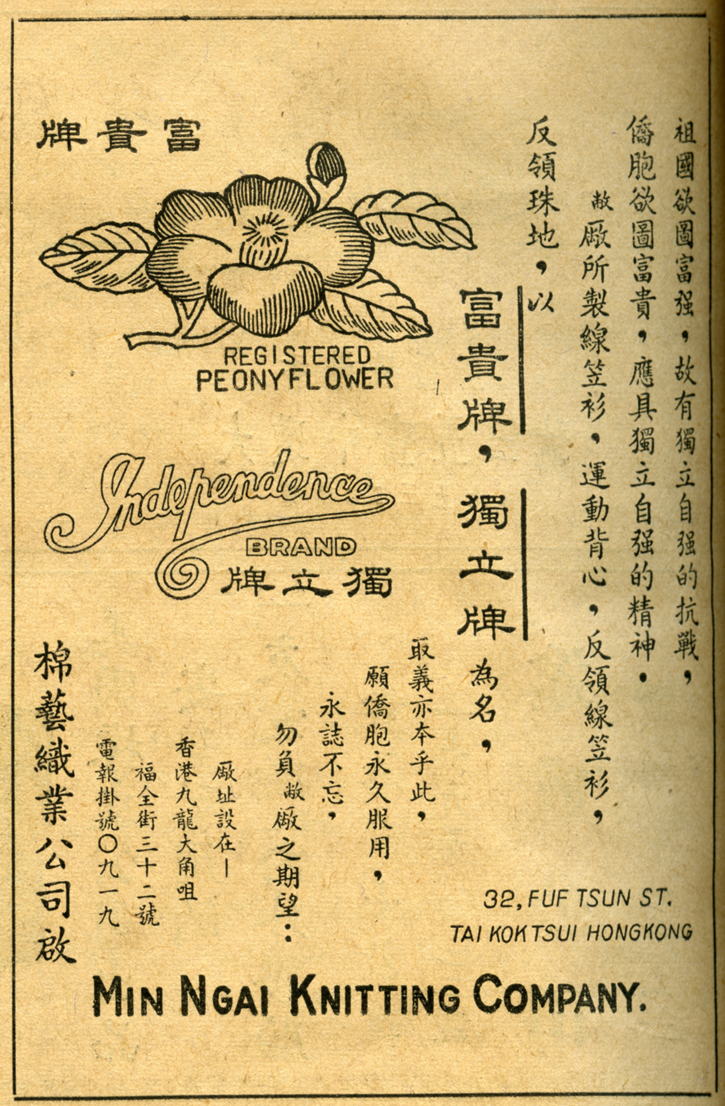 祖國欲圖富强，故有獨立自强的抗戰，
僑胞欲圖富貴，應具獨立自强的精神。
敝廠所製線笠衫，運動背心，反領線笠衫，
反領珠地，以
富貴牌，獨立牌為名，
取義亦本乎此，
願僑胞永久服用，
永誌不忘，
勿負敝廠之期望：
廠址設在—
香港九龍大角咀
福全街三十二號
電報掛號〇九一九
棉藝織業公司啟
牌貴富
REGISTERED
PEONY FLOWER
Independence
BRAND
牌立獨
32, FUF TSUN ST.
TAI KOK TSUI HONGKONG
MIN NGAI KNITTING COMPANY.